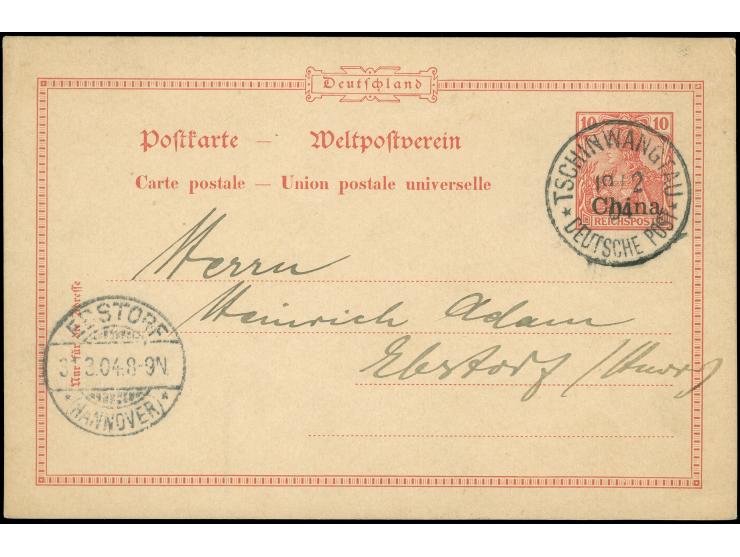 Deutschland
Postkarte — Weltpostverein
Carte postale — Union postale universelle
10 10
China
REICHSPOST
TSCHINWANGTAU
19 2
04
* DEUTSCHE POST *
Herrn
Heinrich Adam
Ebstorf (Hann.)
Nur für die Adresse
EBSTORF
3.04 8-9N.
* (HANNOVER) *